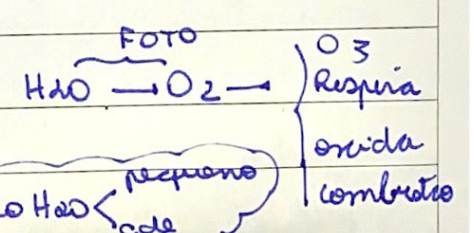 FOTO
H2O → O2 → O3
Respira
oxida
combustão
O H2O < pequeno